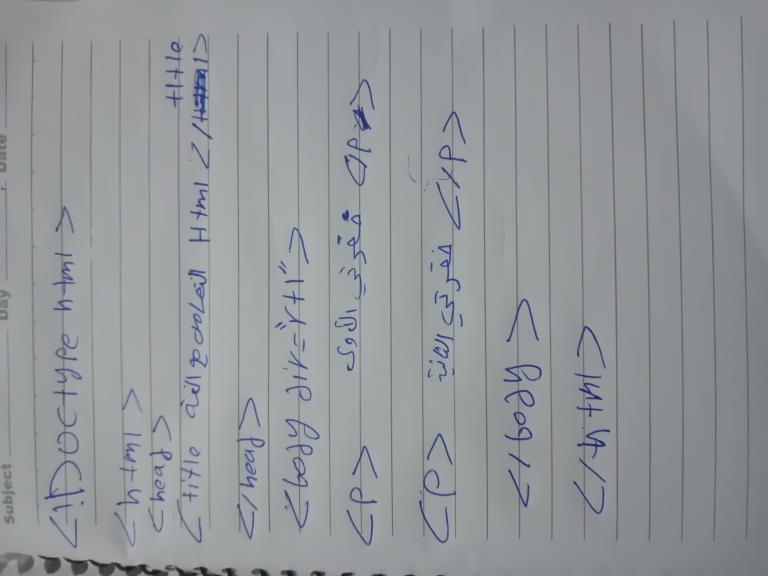 Subject Day Date
<!Doctype html>
<html>
<head>
<title صفحتي html </title>
</head>
<body dir="rtl">
<p> فقرتي الاولى </p>
<p> فقرتي الثانية </p>
</body>
</html>